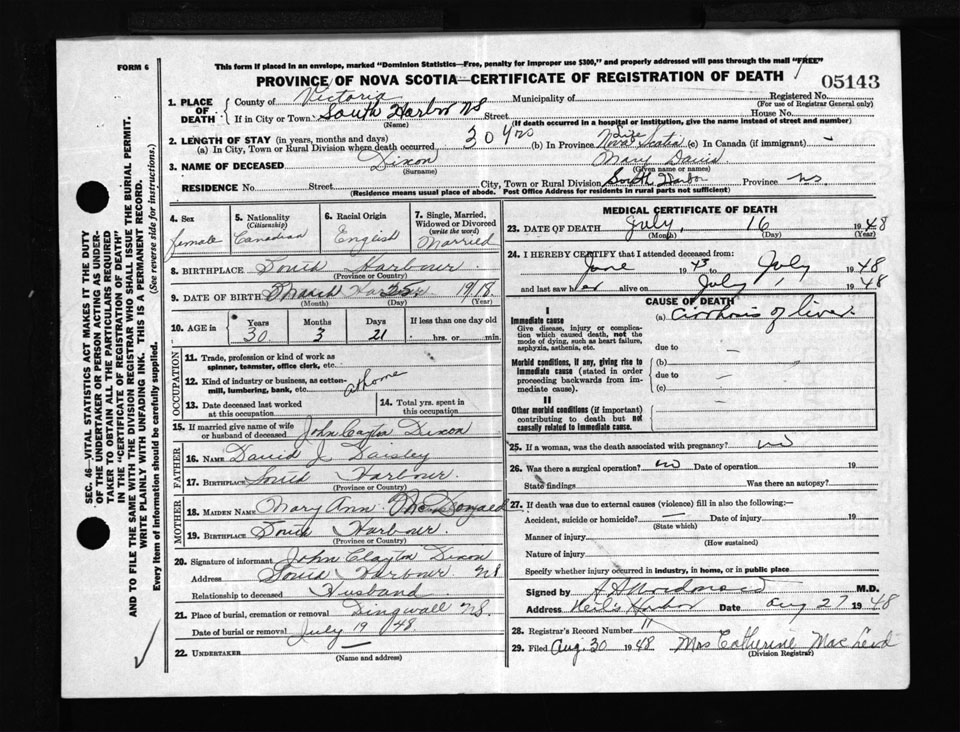 FORM 6
This form if placed in an envelope, marked "Dominion Statistics—Free, penalty for improper use $300," and properly addressed will pass through the mail "FREE"
PROVINCE OF NOVA SCOTIA—CERTIFICATE OF REGISTRATION OF DEATH
05143
1. PLACE OF DEATH
County of Victoria Municipality of Registered No.
(For use of Registrar General only)
If in City or Town South Harbor NS Street House No.
(Name) (If death occurred in a hospital or institution, give the name instead of street and number)
2. LENGTH OF STAY (in years, months and days)
(a) In City, Town or Rural Division where death occurred 30 yrs (b) In Province Life Nova Scotia (c) In Canada (if immigrant) –
3. NAME OF DECEASED Dixon Mary
(Surname) (Given name or names)
RESIDENCE No. Street City, Town or Rural Division South Harbor Province NS
(Residence means usual place of abode. Post Office Address for residents in rural parts not sufficient)
4. Sex
female
5. Nationality (Citizenship)
Canadian
6. Racial Origin
English
7. Single, Married, Widowed or Divorced (write the word)
Married
8. BIRTHPLACE South Harbour
(Province or Country)
9. DATE OF BIRTH March 25 1918
(Month) (Day) (Year)
10. AGE in
Years Months Days If less than one day old
30 3 21 hrs. or min.
OCCUPATION
11. Trade, profession or kind of work as spinner, teamster, office clerk, etc.
12. Kind of industry or business, as cotton-mill, lumbering, bank, etc. at home
13. Date deceased last worked at this occupation
14. Total yrs. spent in this occupation
15. If married give name of wife or husband of deceased John Dixon
FATHER
16. NAME David J Daisley
17. BIRTHPLACE South Harbour
(Province or Country)
MOTHER
18. MAIDEN NAME Mary Ann McDonald
19. BIRTHPLACE South Harbour
(Province or Country)
20. Signature of informant John Clayton Dixon
Address South Harbour NS
Relationship to deceased Husband
21. Place of burial, cremation or removal Dingwall NS.
Date of burial or removal July 19 /48
22. UNDERTAKER —
(Name and address)
MEDICAL CERTIFICATE OF DEATH
23. DATE OF DEATH July, 16 1948
(Month) (Day) (Year)
24. I HEREBY CERTIFY that I attended deceased from
June 1943 to July 1948
and last saw her alive on July 1, 1948
CAUSE OF DEATH
I
Immediate cause
Give disease, injury or complication which caused death, not the mode of dying, such as heart failure, asphyxia, asthenia, etc.
(a) Cirrhosis of liver
due to –
Morbid conditions, if any, giving rise to immediate cause (stated in order proceeding backwards from immediate cause).
(b) –
due to –
(c) –
II
Other morbid conditions (if important) contributing to death but not causally related to immediate cause.
25. If a woman, was the death associated with pregnancy? no
26. Was there a surgical operation? no Date of operation 19
State findings Was there an autopsy?
27. If death was due to external causes (violence) fill in also the following:—
Accident, suicide or homicide? — Date of injury 19
(State which)
Manner of injury
(How sustained)
Nature of injury
Specify whether injury occurred in industry, in home, or in public place
Signed by M.D.
Address Neils Harbor Date Aug 27 1948
28. Registrar's Record Number 11
29. Filed Aug. 30 1948 Mrs Catherine MacLeod
(Division Registrar)
SEC. 46—VITAL STATISTICS ACT MAKES IT THE DUTY
OF THE UNDERTAKER OR PERSON ACTING AS UNDER-
TAKER TO OBTAIN ALL THE PARTICULARS REQUIRED
IN THE "CERTIFICATE OF REGISTRATION OF DEATH"
AND TO FILE THE SAME WITH THE DIVISION REGISTRAR WHO SHALL ISSUE THE BURIAL PERMIT.
WRITE PLAINLY WITH UNFADING INK. THIS IS A PERMANENT RECORD.
Every item of Information should be carefully supplied. (See reverse ride for instructions.)